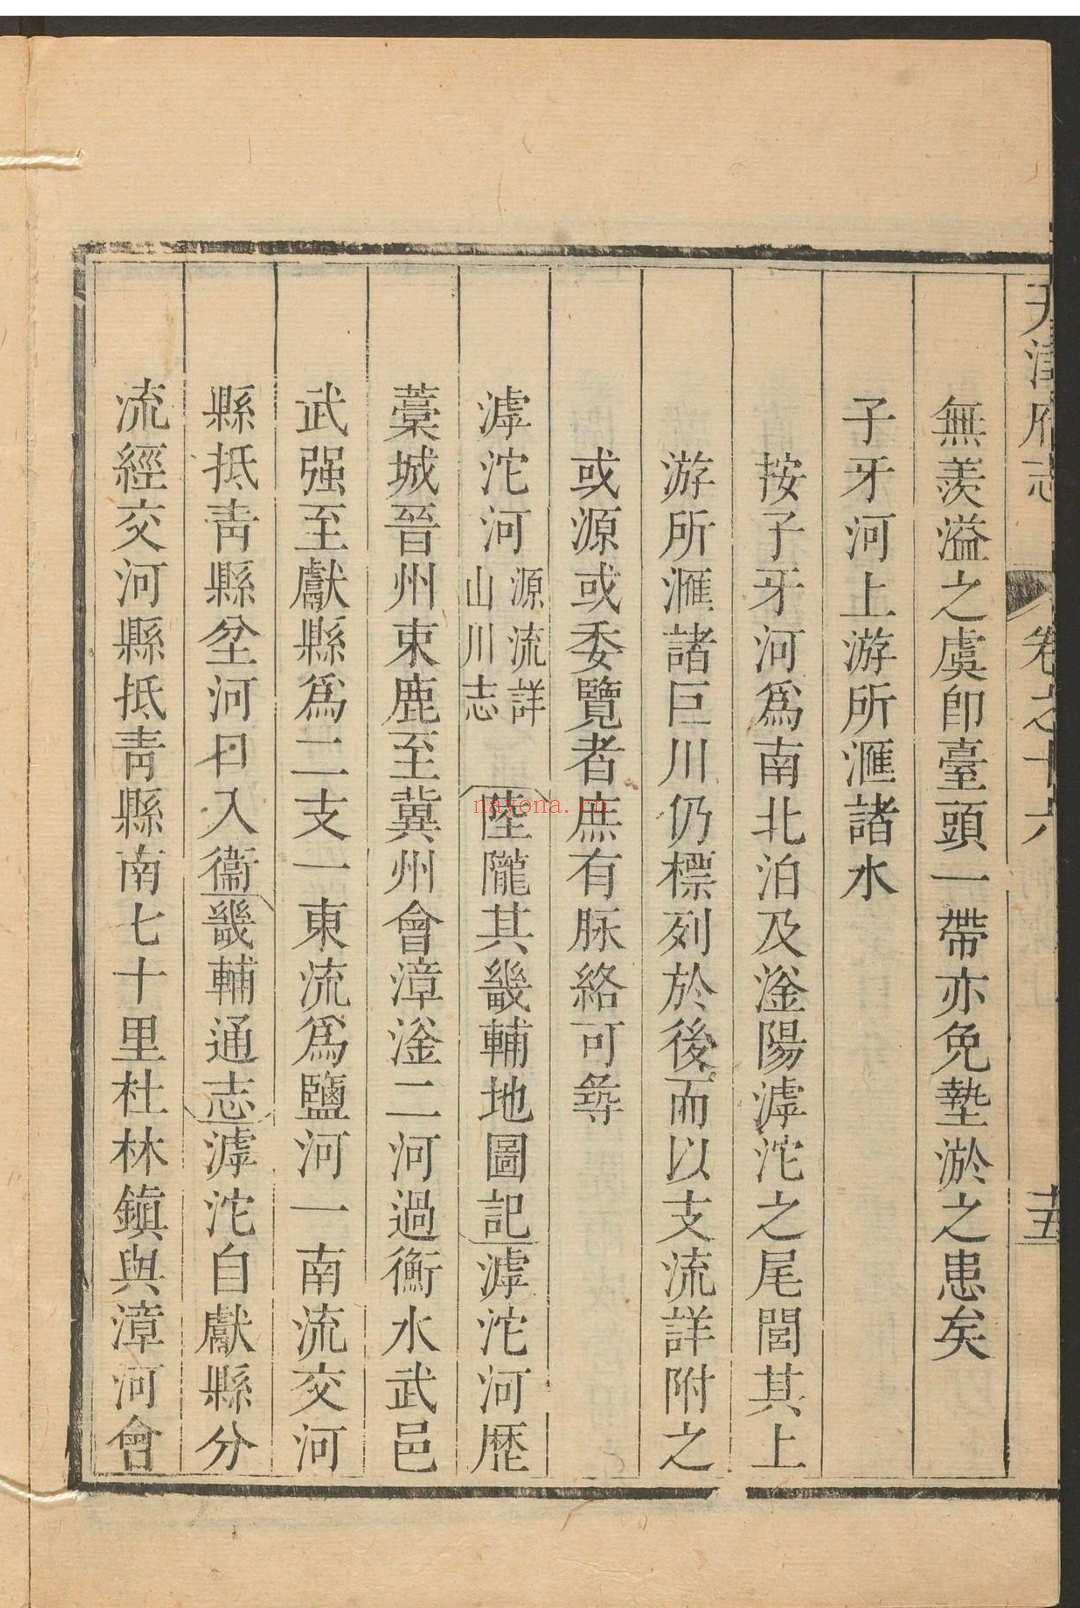 天津府志 卷之十六 十五
無羨溢之虞卽臺頭一帶亦免墊淤之患矣
子牙河上游所滙諸水
按子牙河爲南北泊及滏陽滹沱之尾閭其上
游所滙諸巨川仍標列於後而以支流詳附之
或源或委覽者庶有脉絡可尋
滹沱河源流詳山川志 陸隴其畿輔地圖記滹沱河歷
藁城晉州束鹿至冀州會漳滏二河過衡水武邑
武强至獻縣爲二支一東流爲鹽河一南流交河
縣抵青縣坌河口入衞畿輔通志滹沱自獻縣分
流經交河縣抵青縣南七十里杜林鎮與漳河會
nayona.cn